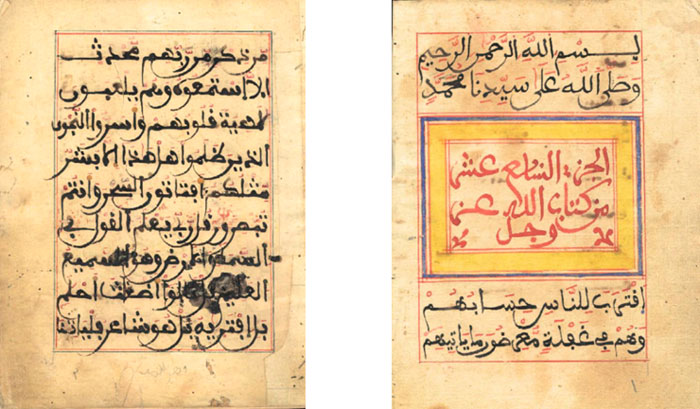 بسم الله الرحمن الرحيم
وصلى الله على سيدنا محمد
الجزء السابع عشر
من كتاب الله عز
وجل
اقترب للناس حسابهم
وهم في غفلة معرضون ما ياتيهم
من ذكر من ربهم محدث
الا استمعوه وهم يلعبون
لاهية قلوبهم واسروا النجوى
الذين ظلموا هل هذا الا بشر
مثلكم افتاتون السحر وانتم
تبصرون قل ربي يعلم القول في
السماء والارض وهو السميع
العليم بل قالوا اضغث احلم
بل افتريه بل هو شاعر فلياتنا